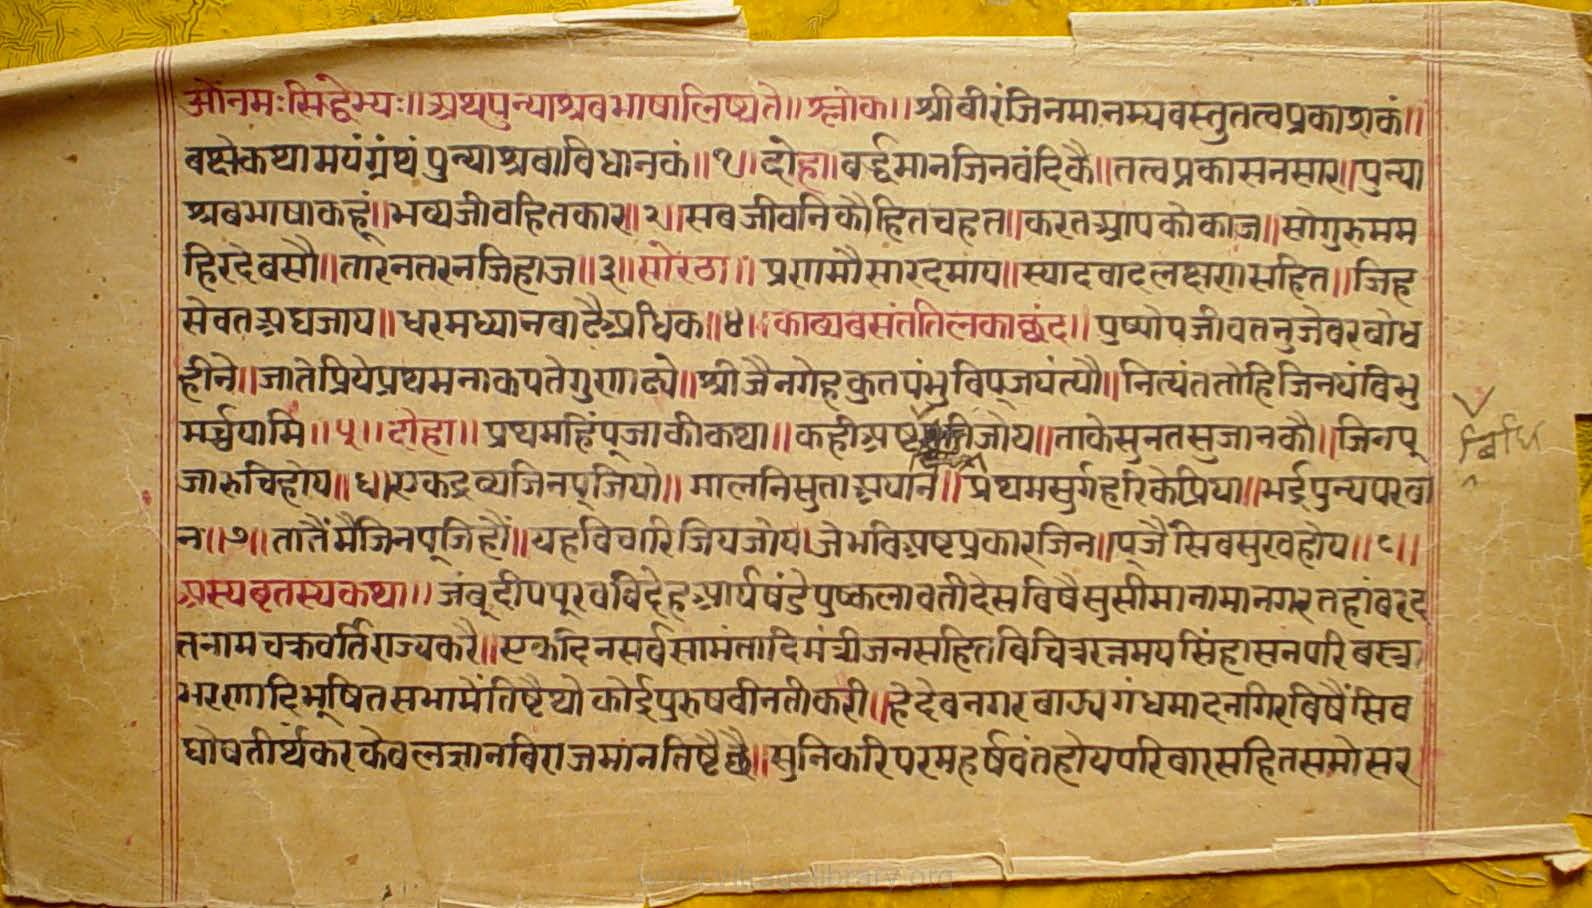 ओंनमःसिद्धेभ्यः॥अथपुन्याश्रवभाषालिष्यते॥श्लोक॥श्रीवीरंजिनमानम्यवस्तुतत्वप्रकाशकं॥
बक्षेकथामयंग्रंथंपुन्याश्रवाविधानकं॥१॥दोहा॥बर्द्धमानजिनवंदिकै॥तत्वप्रकासनसार॥पुन्या
श्रवभाषाकहूं॥भव्यजीवहितकार॥२॥सबजीवनिकौहितचहत॥करतआपकोकाज॥सोगुरुमम
हिरदेबसौ॥तारनतरनजिहाज॥३॥सोरठा॥प्रणमौसारदमाय॥स्यादवादलक्षणसहित॥जिह
सेवतअघजाय॥धरमध्यानबाढैअधिक॥४॥काव्यबसंततिलकाछंद॥पुष्पोपजीवतनुजेवरबोध
हीने॥जातेप्रियेप्रथमनाकपतेगुणाढ्ये॥श्रीजैनगेहकुतपंभुविपूजयंत्यौ॥नित्यंततोहिजिनपंविभु
मर्च्चयामि॥५॥दोहा॥प्रथमहिंपूजाकीकथा॥कहीअष्ट जोय॥ताकेसुनतसुजानकौ॥जिनपू
जारुचिहोय॥६॥एकद्रव्यजिनपूजियो॥मालनिसुताअयान॥प्रथमसुर्गहरिकेप्रिया॥भईपुन्यपरवा
न॥७॥तातैंमैजिनपूजिहौं॥यहविचारिजियजोय॥जेभविअष्टप्रकारजिन॥पूजैंसिवसुखहोय॥८॥
अस्यबृतस्यकथा॥जंबूदीपपूरवविदेहआर्यषंडेपुष्कलावतीदेसविषैसुसीमानामानगरतहांबरद
तनामचक्रवर्तिराज्यकरै॥एकदिनसर्वसामंतादिमंत्रीजनसहितबिचित्ररत्नमयसिंहासनपरिबस्त्रा
भरणादिभूषितसभामेंतिष्टैथो कोईपुरुषवीनतीकरी॥हेदेवनगरबाज्यगंधमादनगिरबिषैंसिव
घोषतीर्थंकरकेवलज्ञानबिराजमांनतिष्टैछै॥सुनिकरिपरमहर्षवंतहोयपरिवारसहितसमोसर